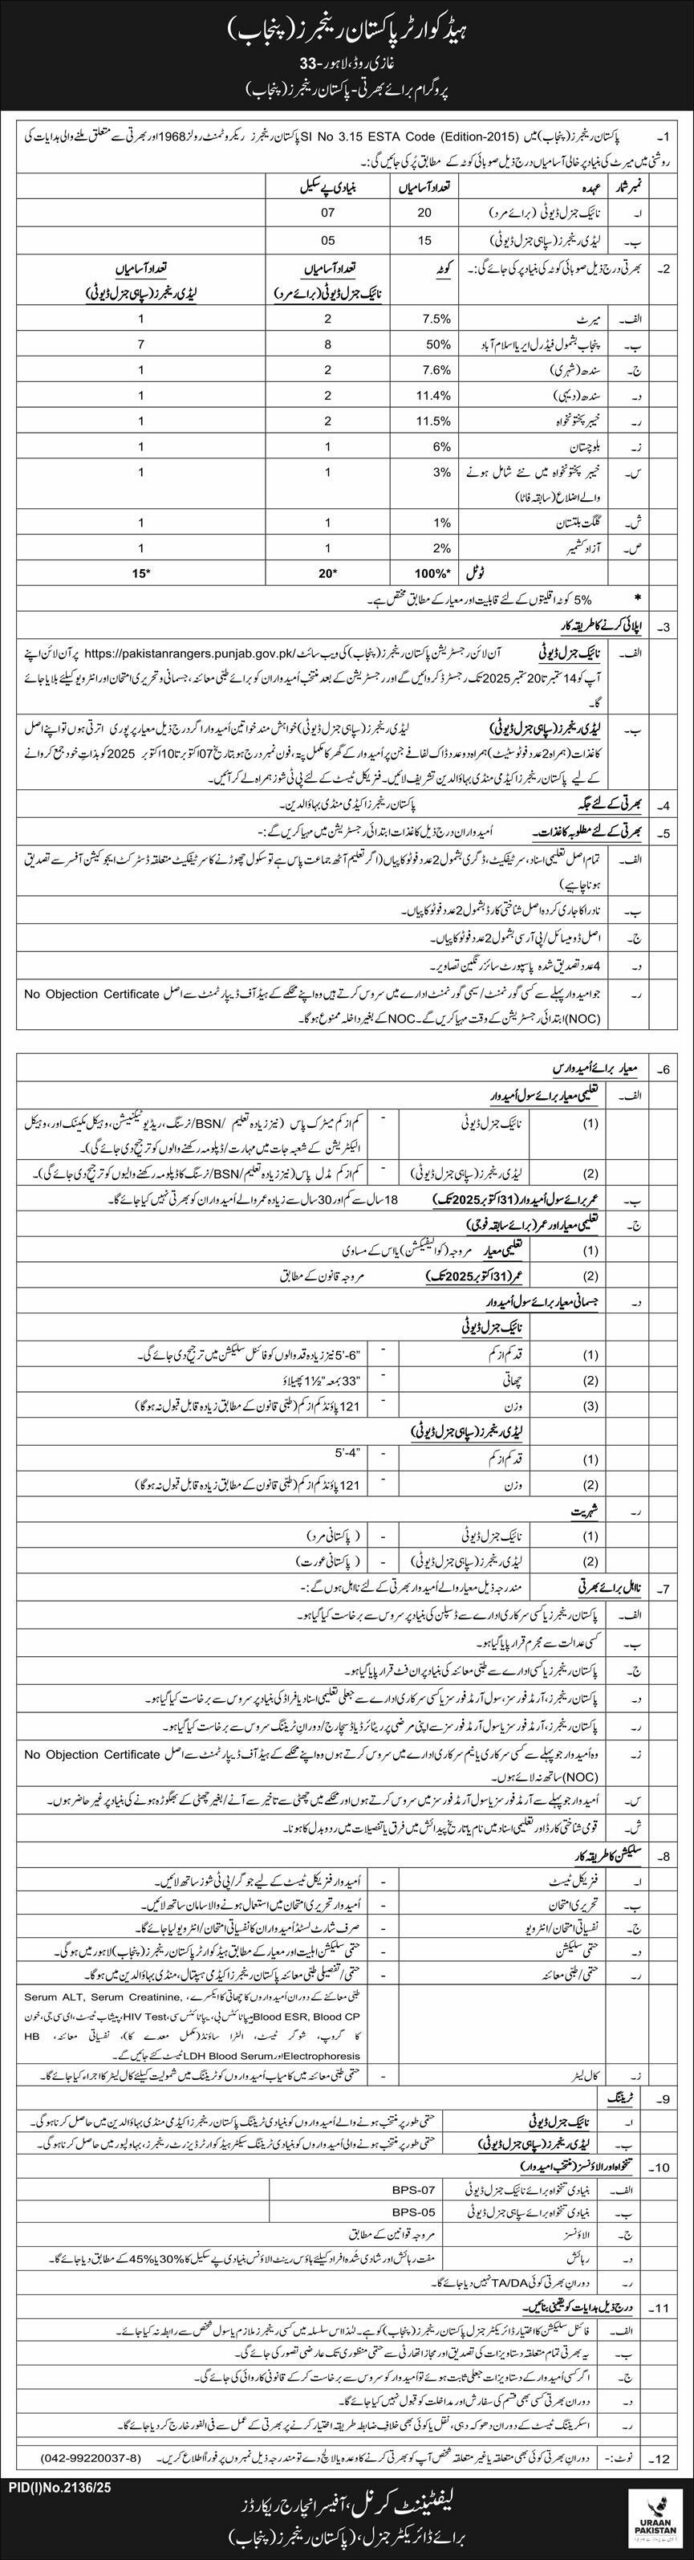 ہیڈ کوارٹر پاکستان رینجرز (پنجاب)
غازی روڈ، لاہور-33
پروگرام برائے بھرتی - پاکستان رینجرز (پنجاب)
1- پاکستان رینجرز (پنجاب) میں SI No 3.15 ESTA Code (Edition-2015) پاکستان رینجرز ریکروٹمنٹ رولز 1968 اور بھرتی سے متعلق ملنے والی ہدایات کی
روشنی میں میرٹ کی بنیاد پر خالی آسامیاں درج ذیل صوبائی کوٹہ کے مطابق پُر کی جائیں گی:۔
نمبر شمار عہدہ تعداد آسامیاں بنیادی پے سکیل
ا۔ نائیک جنرل ڈیوٹی (برائے مرد) 20 07
ب۔ لیڈی رینجرز (سپاہی جنرل ڈیوٹی) 15 05
2- بھرتی درج ذیل صوبائی کوٹہ کی بنیاد پر کی جائے گی:۔ کوٹہ تعداد آسامیاں نائیک جنرل ڈیوٹی (برائے مرد) تعداد آسامیاں لیڈی رینجرز (سپاہی جنرل ڈیوٹی)
الف۔ میرٹ 7.5% 2 1
ب۔ پنجاب بشمول فیڈرل ایریا اسلام آباد 50% 8 7
ج۔ سندھ (شہری) 7.6% 2 1
د۔ سندھ (دیہی) 11.4% 2 1
ر۔ خیبر پختونخواہ 11.5% 2 1
ز۔ بلوچستان 6% 1 1
س۔ خیبر پختونخواہ میں نئے شامل ہونے 3% 1 1
والے اضلاع (سابقہ فاٹا)
ش۔ گلگت بلتستان 1% 1 1
ص۔ آزاد کشمیر 2% 1 1
ٹوٹل 100%* 20* 15*
* 5% کوٹہ اقلیتوں کے لئے قابلیت اور معیار کے مطابق مختص ہے۔
3- اپلائی کرنے کا طریقہ کار
الف۔ نائیک جنرل ڈیوٹی آن لائن رجسٹریشن پاکستان رینجرز (پنجاب) کی ویب سائٹ https://pakistanrangers.punjab.gov.pk/ پر آن لائن اپنے
آپ کو 14 ستمبر تا 20 ستمبر 2025 تک رجسٹرڈ کروائیں گے اور رجسٹریشن کے بعد منتخب اُمیدواران کو برائے طبی معائنہ، جسمانی و تحریری امتحان اور انٹرویو کیلئے بلایا جائے
گا۔
ب۔ لیڈی رینجرز (سپاہی جنرل ڈیوٹی) لیڈی رینجرز (سپاہی جنرل ڈیوٹی) خواہش مند خواتین اُمیدوار اگر درج ذیل معیار پر پوری اترتی ہوں تو اپنے اصل
کاغذات (ہمراہ 2 عدد فوٹو سٹیٹ) ہمراہ دو عدد ڈاک لفافے جن پر اُمیدوار کے گھر کا مکمل پتہ، فون نمبر درج ہو بتاریخ 07 اکتوبر تا 10 اکتوبر 2025 کو بذات خود جمع کروانے
کے لیے پاکستان رینجرز اکیڈمی منڈی بہاؤالدین تشریف لائیں۔ فزیکل ٹیسٹ کے لئے پی ٹی شوز ہمراہ لے کر آئیں۔
4- بھرتی کے لئے جگہ پاکستان رینجرز اکیڈمی منڈی بہاؤالدین۔
5- بھرتی کے لئے مطلوبہ کاغذات۔ اُمیدواران درج ذیل کاغذات ابتدائی رجسٹریشن میں مہیا کریں گے:-
الف۔ تمام اصل تعلیمی اسناد، سرٹیفکیٹ، ڈگری بشمول 2 عدد فوٹو کاپیاں (اگر تعلیم آٹھ جماعت پاس ہے تو سکول چھوڑنے کا سرٹیفکیٹ متعلقہ ڈسٹرکٹ ایجوکیشن آفسر سے تصدیق
ہونا چاہیے)
ب۔ نادرا کا جاری کردہ اصل شناختی کارڈ بشمول 2 عدد فوٹو کاپیاں۔
ج۔ اصل ڈومیسائل/پی آر سی بشمول 2 عدد فوٹو کاپیاں۔
د۔ 4 عدد تصدیق شدہ پاسپورٹ سائز رنگین تصاویر۔
ر۔ جو امیدوار پہلے سے کسی گورنمنٹ/سیمی گورنمنٹ ادارے میں سروس کرتے ہیں وہ اپنے محکمے کے ہیڈ آف ڈیپارٹمنٹ سے اصل No Objection Certificate
(NOC) ابتدائی رجسٹریشن کے وقت مہیا کریں گے۔ NOC کے بغیر داخلہ ممنوع ہوگا۔
6- معیار برائے اُمیدوارس
الف۔ تعلیمی معیار برائے سول اُمیدوار
(1) نائیک جنرل ڈیوٹی - کم از کم میٹرک پاس (نیز زیادہ تعلیم/BSN/نرسنگ، ریڈیو ٹیکنیشن، وہیکل مکینک اور وہیکل
الیکٹریشن کے شعبہ جات میں مہارت/ڈپلومہ رکھنے والوں کو ترجیح دی جائے گی)۔
(2) لیڈی رینجرز (سپاہی جنرل ڈیوٹی) - کم از کم مڈل پاس (نیز زیادہ تعلیم/BSN/نرسنگ کا ڈپلومہ رکھنے والیوں کو ترجیح دی جائے گی)۔
ب۔ عمر برائے سول اُمیدوار (31 اکتوبر 2025 تک) 18 سال سے کم اور 30 سال سے زیادہ عمر والے اُمیدواران کو بھرتی نہیں کیا جائے گا۔
ج۔ تعلیمی معیار اور عمر (برائے سابقہ فوجی)
(1) تعلیمی معیار مروجہ (کوالیفکیشن) یا اس کے مساوی
(2) عمر (31 اکتوبر 2025 تک) مروجہ قانون کے مطابق
د۔ جسمانی معیار برائے سول اُمیدوار
نائیک جنرل ڈیوٹی
(1) قد کم از کم - 5'-6" نیز زیادہ قد والوں کو فائنل سلیکشن میں ترجیح دی جائے گی۔
(2) چھاتی - 33" بمعہ 1½" پھیلاؤ
(3) وزن - 121 پاؤنڈ کم از کم (طبی قانون کے مطابق زیادہ قابل قبول نہ ہوگا)
لیڈی رینجرز (سپاہی جنرل ڈیوٹی)
(1) قد کم از کم - 5'-4"
(2) وزن - 121 پاؤنڈ کم از کم (طبی قانون کے مطابق زیادہ قابل قبول نہ ہوگا)
ر۔ شہریت
(1) نائیک جنرل ڈیوٹی - (پاکستانی مرد)
(2) لیڈی رینجرز (سپاہی جنرل ڈیوٹی) - (پاکستانی عورت)
7- نااہل برائے بھرتی مندرجہ ذیل معیار والے اُمیدوار بھرتی کے لئے نااہل ہوں گے:-
الف۔ پاکستان رینجرز یا کسی سرکاری ادارے سے ڈسپلن کی بنیاد پر سروس سے برخاست کیا گیا ہو۔
ب۔ کسی عدالت سے مجرم قرار پایا گیا ہو۔
ج۔ پاکستان رینجرز یا کسی ادارے سے طبی معائنہ کی بنیاد پر ان فٹ قرار پایا گیا ہو۔
د۔ پاکستان رینجرز، آرمڈ فورسز، سول آرمڈ فورسز یا کسی سرکاری ادارے سے جعلی تعلیمی اسناد یا فراڈ کی بنیاد پر سروس سے برخاست کیا گیا ہو۔
ر۔ پاکستان رینجرز، آرمڈ فورسز یا سول آرمڈ فورسز سے اپنی مرضی پر ریٹائرڈ یا ڈسچارج/دوران ٹریننگ سروس سے برخاست کیا گیا ہو۔
ز۔ وہ اُمیدوار جو پہلے سے کسی سرکاری یا نیم سرکاری ادارے میں سروس کرتے ہوں وہ اپنے محکمے کے ہیڈ آف ڈیپارٹمنٹ سے اصل No Objection Certificate
(NOC) ساتھ نہ لائے ہوں۔
س۔ اُمیدوار جو پہلے سے آرمڈ فورسز یا سول آرمڈ فورسز میں سروس کرتے ہوں اور محکمے میں چھٹی سے تاخیر سے آنے/بغیر چھٹی کے بھگوڑہ ہونے کی بنیاد پر غیر حاضر ہوں۔
ش۔ قومی شناختی کارڈ اور تعلیمی اسناد میں نام یا تاریخ پیدائش میں فرق یا تفصیلات میں ردوبدل کا ہونا۔
8- سلیکشن کا طریقہ کار
ا۔ فزیکل ٹیسٹ - اُمیدوار فزیکل ٹیسٹ کے لیے جوگر/پی ٹی شوز ساتھ لائیں۔
ب۔ تحریری امتحان - اُمیدوار تحریری امتحان میں استعمال ہونے والا سامان ساتھ لائیں۔
ج۔ نفسیاتی امتحان/انٹرویو - صرف شارٹ لسٹڈ اُمیدواران کا نفسیاتی امتحان/انٹرویو لیا جائے گا۔
د۔ حتمی سلیکشن - حتمی سلیکشن اہلیت اور معیار کے مطابق ہیڈ کوارٹر پاکستان رینجرز (پنجاب) لاہور میں ہوگی۔
ر۔ حتمی/طبی معائنہ - حتمی/تفصیلی طبی معائنہ پاکستان رینجرز اکیڈمی ہسپتال، منڈی بہاؤالدین میں ہوگا۔
طبی معائنے کے دوران اُمیدواروں کا چھاتی کا ایکسرے، Serum ALT, Serum Creatinine,
Blood ESR, Blood CP ہیپاٹائٹس بی، ہیپاٹائٹس سی، HIV Test، پیشاب ٹیسٹ، ای سی جی، خون
کا گروپ، شوگر ٹیسٹ، الٹرا ساؤنڈ (مکمل معدے کا)، نفسیاتی معائنہ، HB
Electrophoresis اور LDH Blood Serum ٹیسٹ کئے جائیں گے۔
ز۔ کال لیٹر - حتمی طبی معائنہ میں کامیاب اُمیدواروں کو ٹریننگ میں شمولیت کیلئے کال لیٹر کا اجراء کیا جائے گا۔
9- ٹریننگ
ا۔ نائیک جنرل ڈیوٹی حتمی طور پر منتخب ہونے والے اُمیدواروں کو بنیادی ٹریننگ پاکستان رینجرز اکیڈمی منڈی بہاؤالدین میں حاصل کرنا ہوگی۔
ب۔ لیڈی رینجرز (سپاہی جنرل ڈیوٹی) حتمی طور پر منتخب ہونے والی اُمیدواروں کو بنیادی ٹریننگ سیکٹر ہیڈ کوارٹر ڈیزرٹ رینجرز، بہاولپور میں حاصل کرنا ہوگی۔
10- تنخواہ اور الاؤنسز (منتخب امیدوار)
الف۔ بنیادی تنخواہ برائے نائیک جنرل ڈیوٹی BPS-07
ب۔ بنیادی تنخواہ برائے سپاہی جنرل ڈیوٹی BPS-05
ج۔ الاؤنسز مروجہ قوانین کے مطابق
د۔ رہائش مفت رہائش اور شادی شُدہ افراد کیلئے ہاؤس رینٹ الاؤنس بنیادی پے سکیل کا 30% یا 45% کے مطابق دیا جائے گا۔
ر۔ دوران بھرتی کوئی TA/DA نہیں دیا جائے گا۔
11- درج ذیل ہدایات کو یقینی بنائیں۔
الف۔ فائنل سلیکشن کا اختیار ڈائریکٹر جنرل پاکستان رینجرز (پنجاب) کو ہے۔ لہٰذا اس سلسلہ میں کسی رینجرز ملازم یا سول شخص سے رابطہ نہ کیا جائے۔
ب۔ یہ بھرتی تمام متعلقہ دستاویزات کی تصدیق اور مجاز اتھارٹی سے حتمی منظوری تک عارضی تصور کی جائے گی۔
ج۔ اگر کسی اُمیدوار کے دستاویزات جعلی ثابت ہوئے تو اُمیدوار کو سروس سے برخاست کر کے قانونی کاروائی کی جائے گی۔
د۔ دوران بھرتی کسی بھی قسم کی سفارش اور مداخلت کو قبول نہیں کیا جائے گا۔
ر۔ اسکریننگ ٹیسٹ کے دوران دھوکہ دہی، نقل یا کوئی بھی خلاف ضابطہ طریقہ اختیار کرنے پر بھرتی کے عمل سے فی الفور خارج کر دیا جائے گا۔
12- نوٹ:- دوران بھرتی کوئی بھی متعلقہ یا غیر متعلقہ شخص آپ کو بھرتی کرنے کا وعدہ یا لالچ دے تو مندرجہ ذیل نمبروں پر فوراً اطلاع کریں۔ (042-99220037-8)
PID(I)No.2136/25
لیفٹیننٹ کرنل، آفیسر انچارج ریکارڈز
برائے ڈائریکٹر جنرل، (پاکستان رینجرز (پنجاب)
URAAN
PAKISTAN